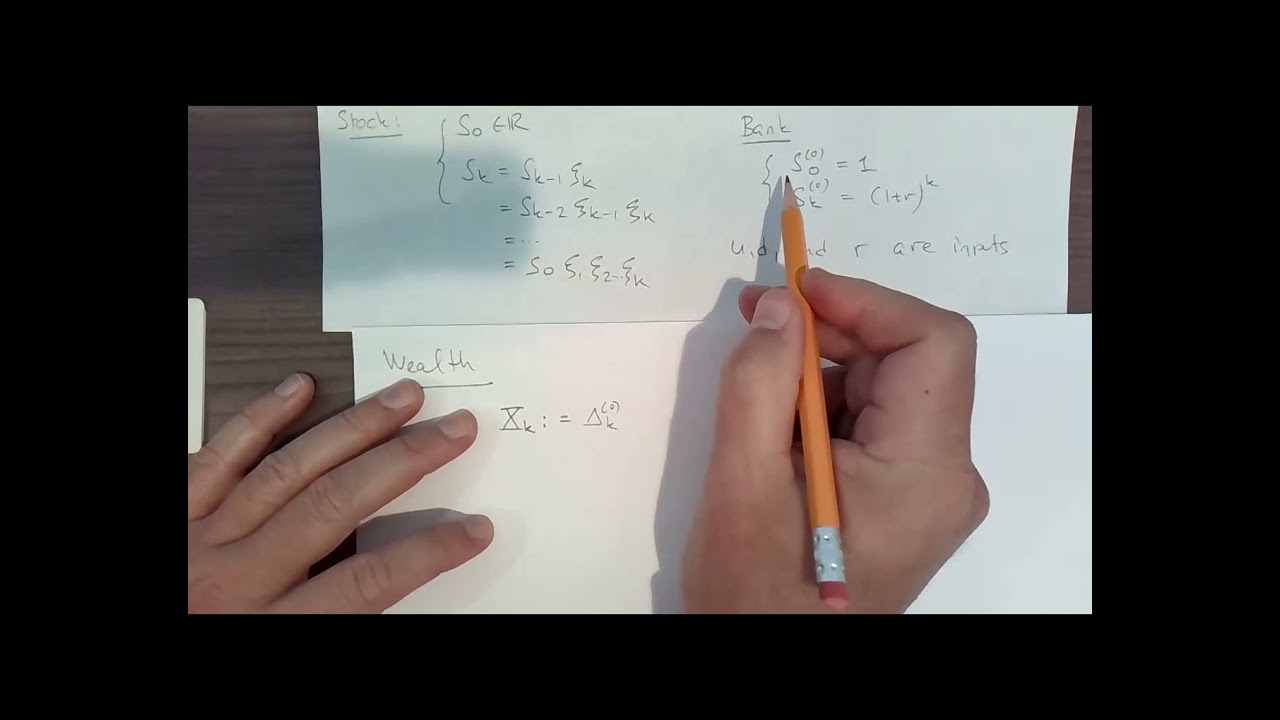 Stock:
S₀ ∈ ℝ
Sₖ = Sₖ₋₁ ξₖ
= Sₖ₋₂ ξₖ₋₁ ξₖ
= ...
= S₀ ξ₁ ξ₂ ... ξₖ
Bank
S₀⁽⁰⁾ = 1
Sₖ⁽⁰⁾ = (1+r)ᵏ
u, d, r are inputs
Wealth
𝕏ₖ := Δₖ⁽⁰⁾